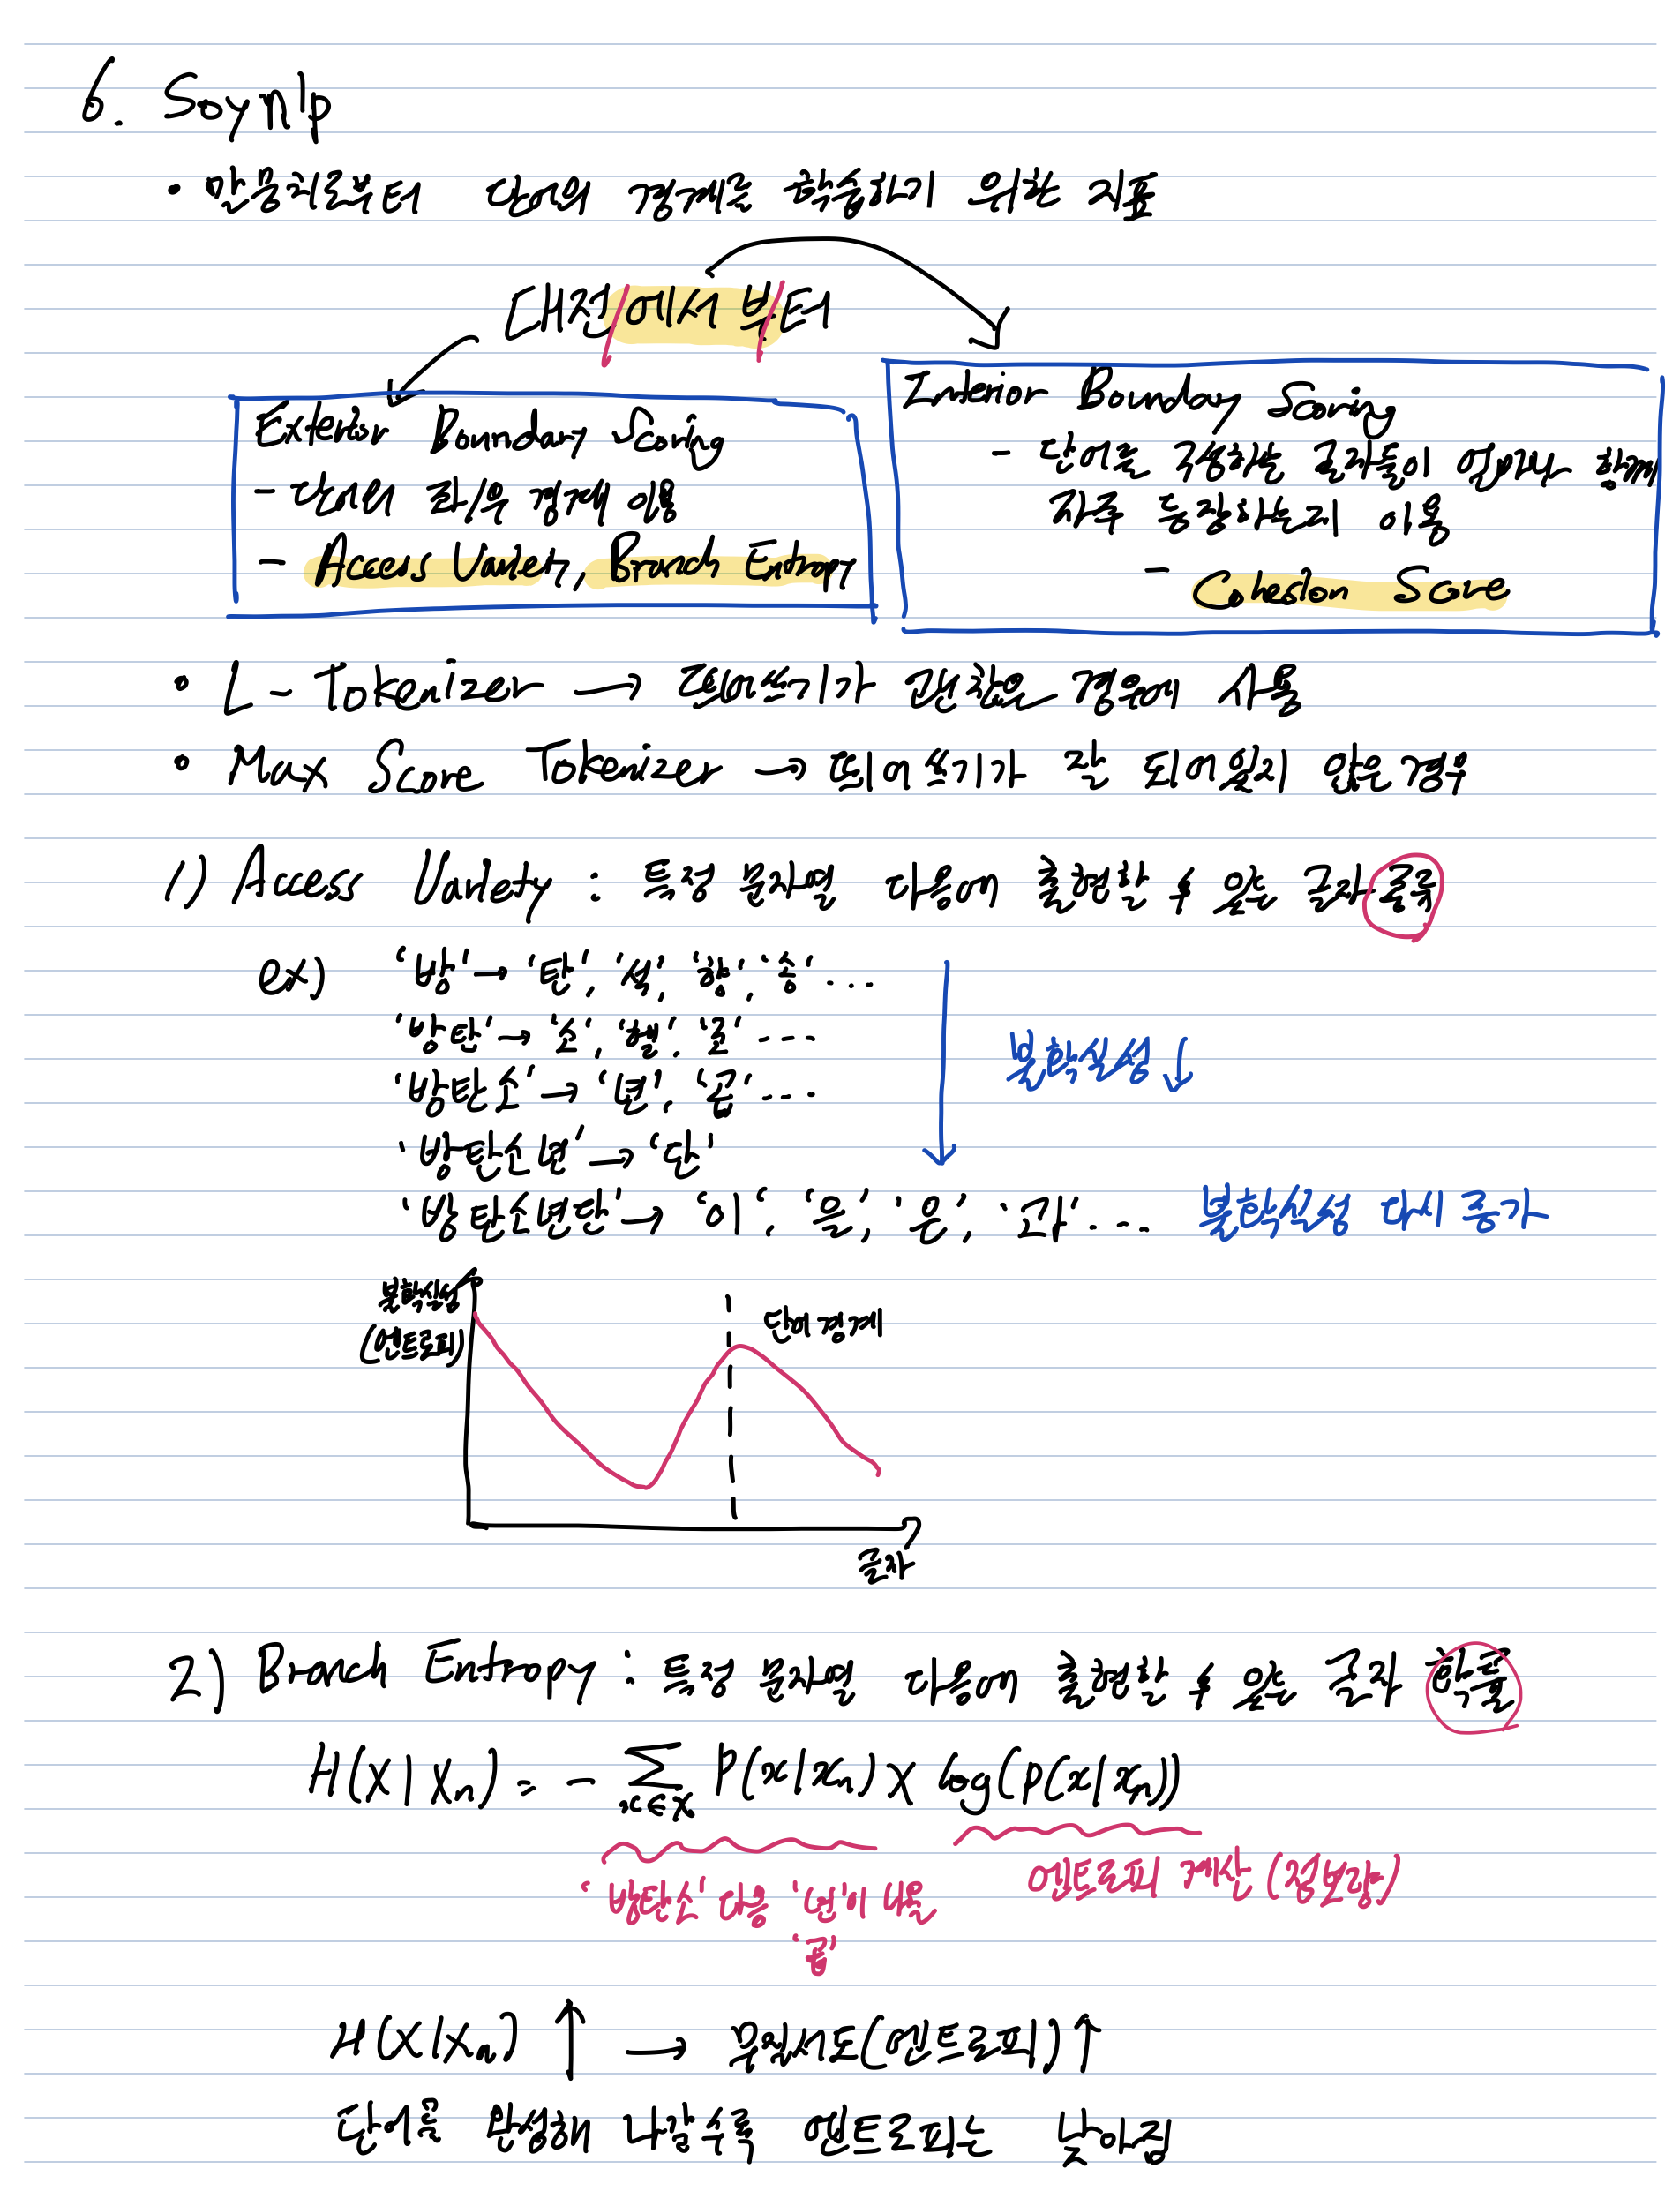 6. Soynlp
• 말뭉치로부터 단어의 경계를 학습하기 위한 지표
대전/에서 부/터
Exterior Boundary Scoring
- 단어의 좌/우 경계 이용
- Access Variety, Branch Entropy
Interior Boundary Scoring
- 단어를 구성하는 글자들이 얼마나 함께
자주 등장하는지 이용
- Cohesion Score
• L-Tokenizer → 띄어쓰기가 괜찮은 경우에 사용
• Max Score Tokenizer → 띄어쓰기가 잘 되어있지 않은 경우
1) Access Variety : 특정 문자열 다음에 출현할 수 있는 글자 종류
ex) '방' → '탄', '석', '향', '송' ...
'방탄' → '소', '헬', '코' ....
'방탄소' → '년', '콥' ....
'방탄소년' → '단'
'방탄소년단' → '이', '을', '은', '과' .... 불확실성 다시 증가
불확실성 ↓
불확실성
(엔트로피)
단어 경계
글자
2) Branch Entropy : 특정 문자열 다음에 출현할 수 있는 글자 확률
H(X|Xn) = - ∑ P(x|xn) × log(P(x|xn))
x∈X
'방탄소' 다음 '년'이 나올
'콥'
엔트로피 계산 (정보량)
H(X|Xn) ↑ → 무질서도(엔트로피) ↑
단어를 완성해 나갈수록 엔트로피는 낮아짐